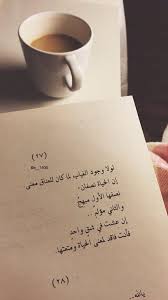 (٢٧)
لولا وجود الغياب لما كان للعناق معنى
إن الحياة نصفان:
نصفها الأول مبهج
والثاني مؤلم ..
إن عشت في شقٍ واحد
فأنت فاقد لمعنى الحياة ومتعتها.
(٢٨)